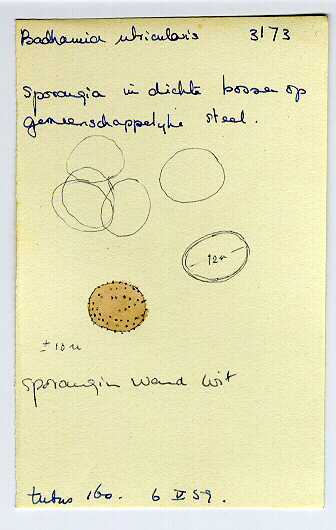 Badhamia utricularis 3173
Sporangia in dichte bossen op
gemeenschappelijke steel.
12 u
± 10 u
Sporangin wand wit
tubus 160. 6 V 59.